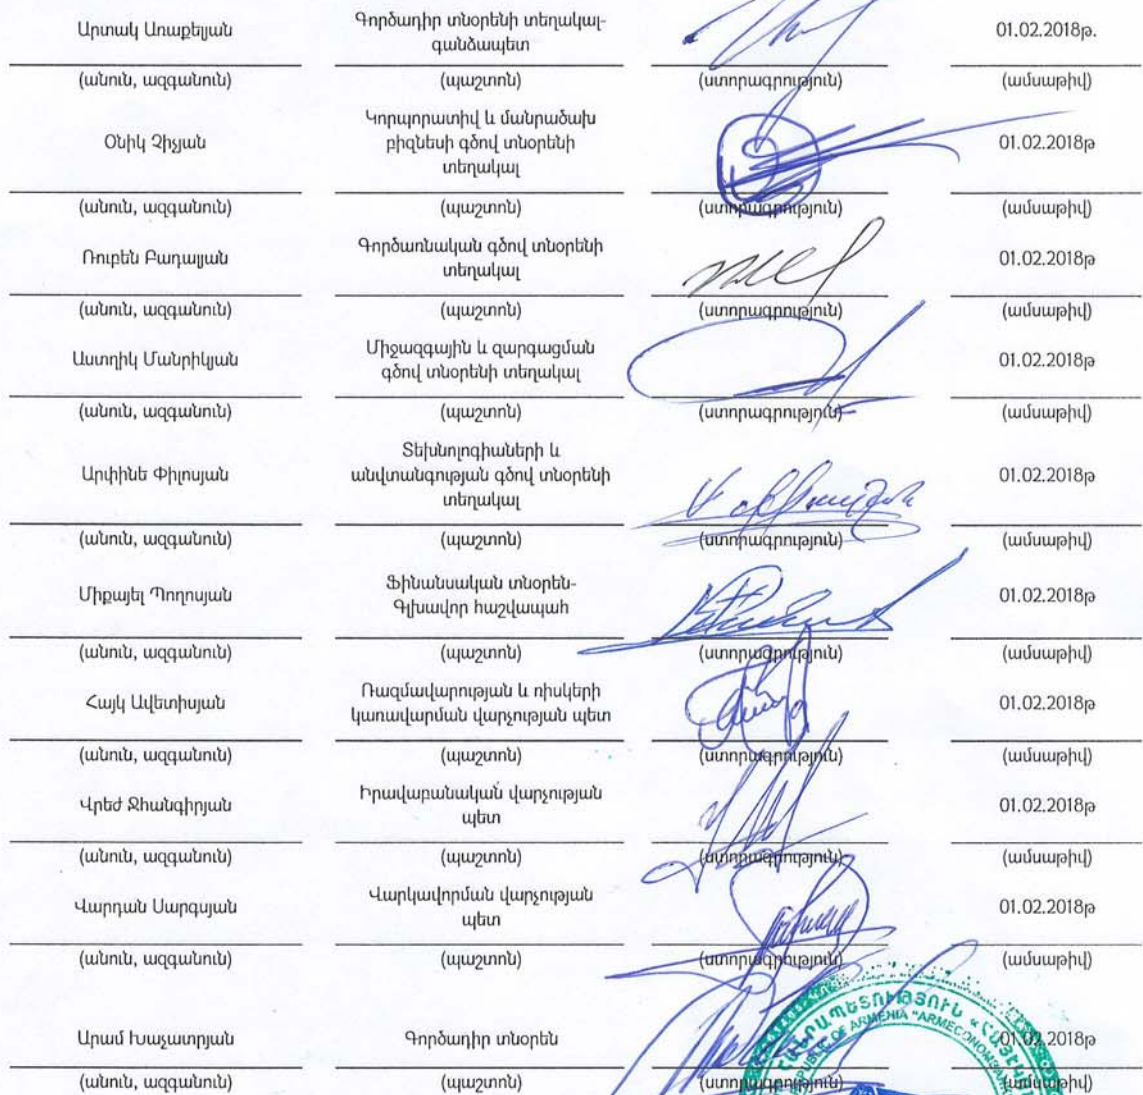 Արտակ Առաքելյան Գործադիր տնօրենի տեղակալ-
գանձապետ 01.02.2018թ.
(անուն, ազգանուն) (պաշտոն) (ստորագրություն) (ամսաթիվ)
Օնիկ Չիչյան Կորպորատիվ և մանրածախ
բիզնեսի գծով տնօրենի
տեղակալ 01.02.2018թ
(անուն, ազգանուն) (պաշտոն) (ստորագրություն) (ամսաթիվ)
Ռուբեն Բադալյան Գործառնական գծով տնօրենի
տեղակալ 01.02.2018թ
(անուն, ազգանուն) (պաշտոն) (ստորագրություն) (ամսաթիվ)
Աստղիկ Մանրիկյան Միջազգային և զարգացման
գծով տնօրենի տեղակալ 01.02.2018թ
(անուն, ազգանուն) (պաշտոն) (ստորագրություն) (ամսաթիվ)
Արփինե Փիլոսյան Տեխնոլոգիաների և
անվտանգության գծով տնօրենի
տեղակալ 01.02.2018թ
(անուն, ազգանուն) (պաշտոն) (ստորագրություն) (ամսաթիվ)
Միքայել Պողոսյան Ֆինանսական տնօրեն-
Գլխավոր հաշվապահ 01.02.2018թ
(անուն, ազգանուն) (պաշտոն) (ստորագրություն) (ամսաթիվ)
Հայկ Ավետիսյան Ռազմավարության և ռիսկերի
կառավարման վարչության պետ 01.02.2018թ
(անուն, ազգանուն) (պաշտոն) (ստորագրություն) (ամսաթիվ)
Վրեժ Ջհանգիրյան Իրավաբանական վարչության
պետ 01.02.2018թ
(անուն, ազգանուն) (պաշտոն) (ստորագրություն) (ամսաթիվ)
Վարդան Սարգսյան Վարկավորման վարչության
պետ 01.02.2018թ
(անուն, ազգանուն) (պաշտոն) (ստորագրություն) (ամսաթիվ)
Արամ Խաչատրյան Գործադիր տնօրեն 01.02.2018թ
(անուն, ազգանուն) (պաշտոն) (ստորագրություն) (ամսաթիվ)
OF ARMENIA "ARMECONOMBANK